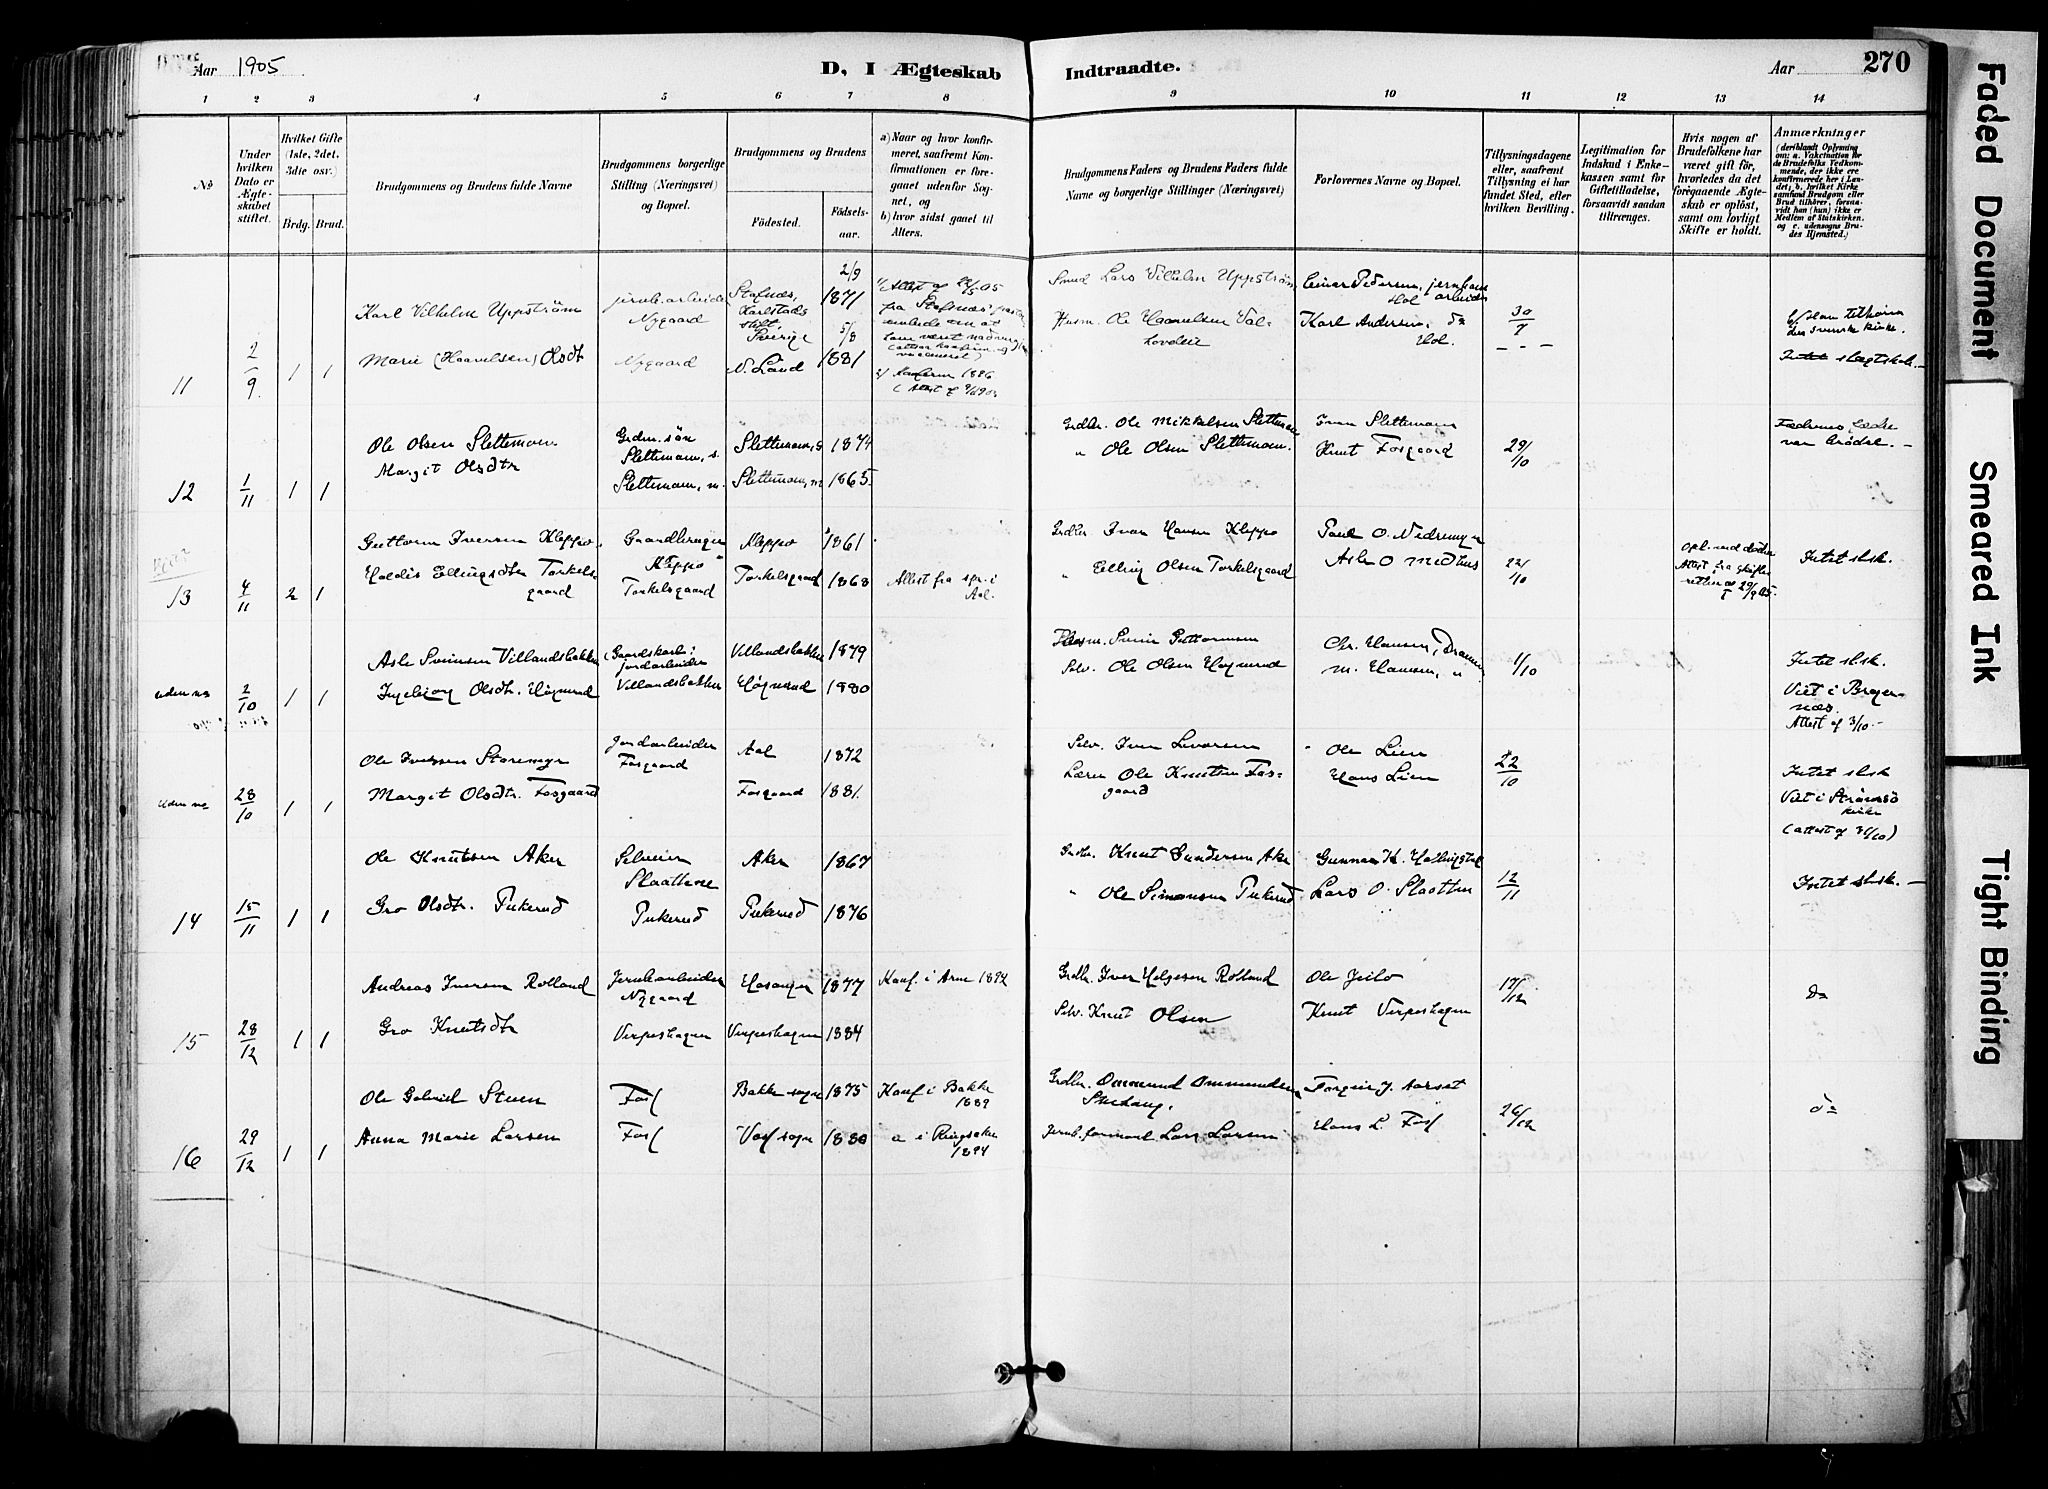 Aar 1905
D, I Ægteskab Indtraadte.
Aar 270
1 2 3 4 5 6 7 8 9 10 11 12 13 14
No
Under hvilken Dato er Ægteskabet stiftet.
Hvilket Gifte (1ste, 2det, 3die osv.)
Brdg. Brud.
Brudgommens og Brudens fulde Navne
Brudgommens borgerlige Stilling (Næringsvei) og Bopæl.
Brudgommens og Brudens
Fødested.
Fødselsaar.
a) Naar og hvor konfirmeret, saafremt Konfirmationen er foregaaet udenfor Sognet, og
b) hvor sidst gaaet til Alters.
Brudgommens Faders og Brudens Faders fulde Navne og borgerlige Stillinger (Næringsvei)
Forlovernes Navne og Bopæl.
Tillysningsdagene eller, saafremt Tillysning ei har fundet Sted, efter hvilken Bevilling.
Legitimation for Indskud i Enkekassen samt for Giftetilladelse, forsaavidt saadan tiltrænges.
Hvis nogen af Brudefolkene har været gift før, hvorledes da det foregaaende Ægteskab er opløst, samt om lovligt Skifte er holdt.
Anmærkninger (deriblandt Oplysning om: a. Vakcination for de Brudefolks Vedkommende, der ikke ere konfirmerede her i Landet; b. hvilket Kirkesamfund Brudgom eller Brud tilhører, forsaavidt han (hun) ikke er Medlem af Statskirken, og c. udensogns Brudes Hjemsted.)
11 2/9 1 1
Karl Vilhelm Uppström jernb.arbeider Nygaard Stafnäs, Karlstads stift, Sverige 2/9 1871
Smed Lars Vilhelm Uppström Einar Pedersen, jernbanearbeider Hol
Marie (Haavelsen) Olsdt Nygaard N. Land 5/8 1881
Husm. Ole Haavelsen Karl Andersen, do Hol. 30/7
Intet slægtskab.
12 1/11 1 1
Ole Olsen Slettemoen Grdm. søn Slettemoen, s. Slettemoen, s 1874
Grdbr. Ole Mikkelsen Slettemoen Iver Slettemoen
Margit Olsdtr Slettemoen, m. Slettemoen, m 1865.
" Ole Olsen Slettemoen. Knut Fosgaard 29/10
var brødre.
13 4/11 2 1
Guttorm Iversen Kleppo. Gaardbruger Kleppo Kleppo 1861
Grdbr. Ivar Hansen Kleppo Paul O. Nedremyr
Holdis Ellingsdtr Torkelsgaard Torkelsgaard Torkelsgaard 1868 Attest fra spr. i Aal.
" Elling Olsen Torkelsgaard Asle O Medhus 22/10 Intet slsk.
uden no 2/10 1 1
Asle Svensen Villandsbakken Gaardskarl i jordarbeider Villandsbakken 1879
Husm. Svein Guttormsen Chr. Hansen, Drammen
Ingeborg Olsdtr. Høgnerud Villandsbakken Høgnerud 1880
Selv. Ole Olsen Høgnerud M. Hansen, " 1/10 Intet slsk.
Viet i Bragernæs. Attest af 3/10.-
uden no 28/10 1 1
Ole Iversen Storemyr Jordarbeider Fosgaard Aal 1872
Selv. Iver Levorsen Ole Lien
Margit Olsdtr. Fosgaard Fosgaard 1881.
Lærer Ole Knutsen Fosgaard Hans Lien 22/10 Intet slsk
Viet i Strømsø kirke (attest af 30/10)
14 15/11 1 1
Ole Knutsen Aker Selveier Slaatterne Aker 1867
Grdbr. Knut Gundersen Aker Gunnar K. Hallingstad
Gro Olsdtr. Pukerud Pukerud Pukerud 1876
" Ole Simonsen Pukerud Lars O. Slaatten 12/11 Intet slsk. -
15 28/12 1 1
Andreas Iversen Rolland Jernb.arbeider Nygaard Hosanger 1877 Konf. i Arne 1892
Grdbr. Iver Helgesen Rolland Ole Jeilo
Gro Knutsdtr Verpeshagen Verpeshagen 1884
Selv. Knut Olsen Knut Verpeshagen 17/12 do
16 29/12 1 1
Ole Gabriel Steen Fosl Bakke sogn 1875 Konf i Bakke 1889
Grdbr. Ommund Ommundsen Torgeir J. Aarset
Anna Marie Larsen Fosl 1880 " i Ringsaker 1894
Jernb.formand Lars Larsen Hans L. Fosl 26/12 do
Faded Document
Smeared Ink
Tight Binding